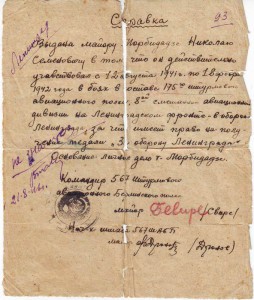 Справка
93.
Выдана майору Корбидадзе Николаю
Семеновичу в том что он действительно
участвовал с 1 августа 1941г. по 1 февр.
1942 года в боях в составе 175 штурмового
авиационного полка, 8ой смешанной авиационной
дивизии на Ленинградском фронте в обороне
Ленинграда за что имеет право на полу-
чение медали "За оборону Ленинграда".
Основание: личное дело т. Корбидадзе.
21-8-46г.
Командир 567 штурмового
авиационного Берлинского полка
майор
Нач-к штаба 567 ШАП